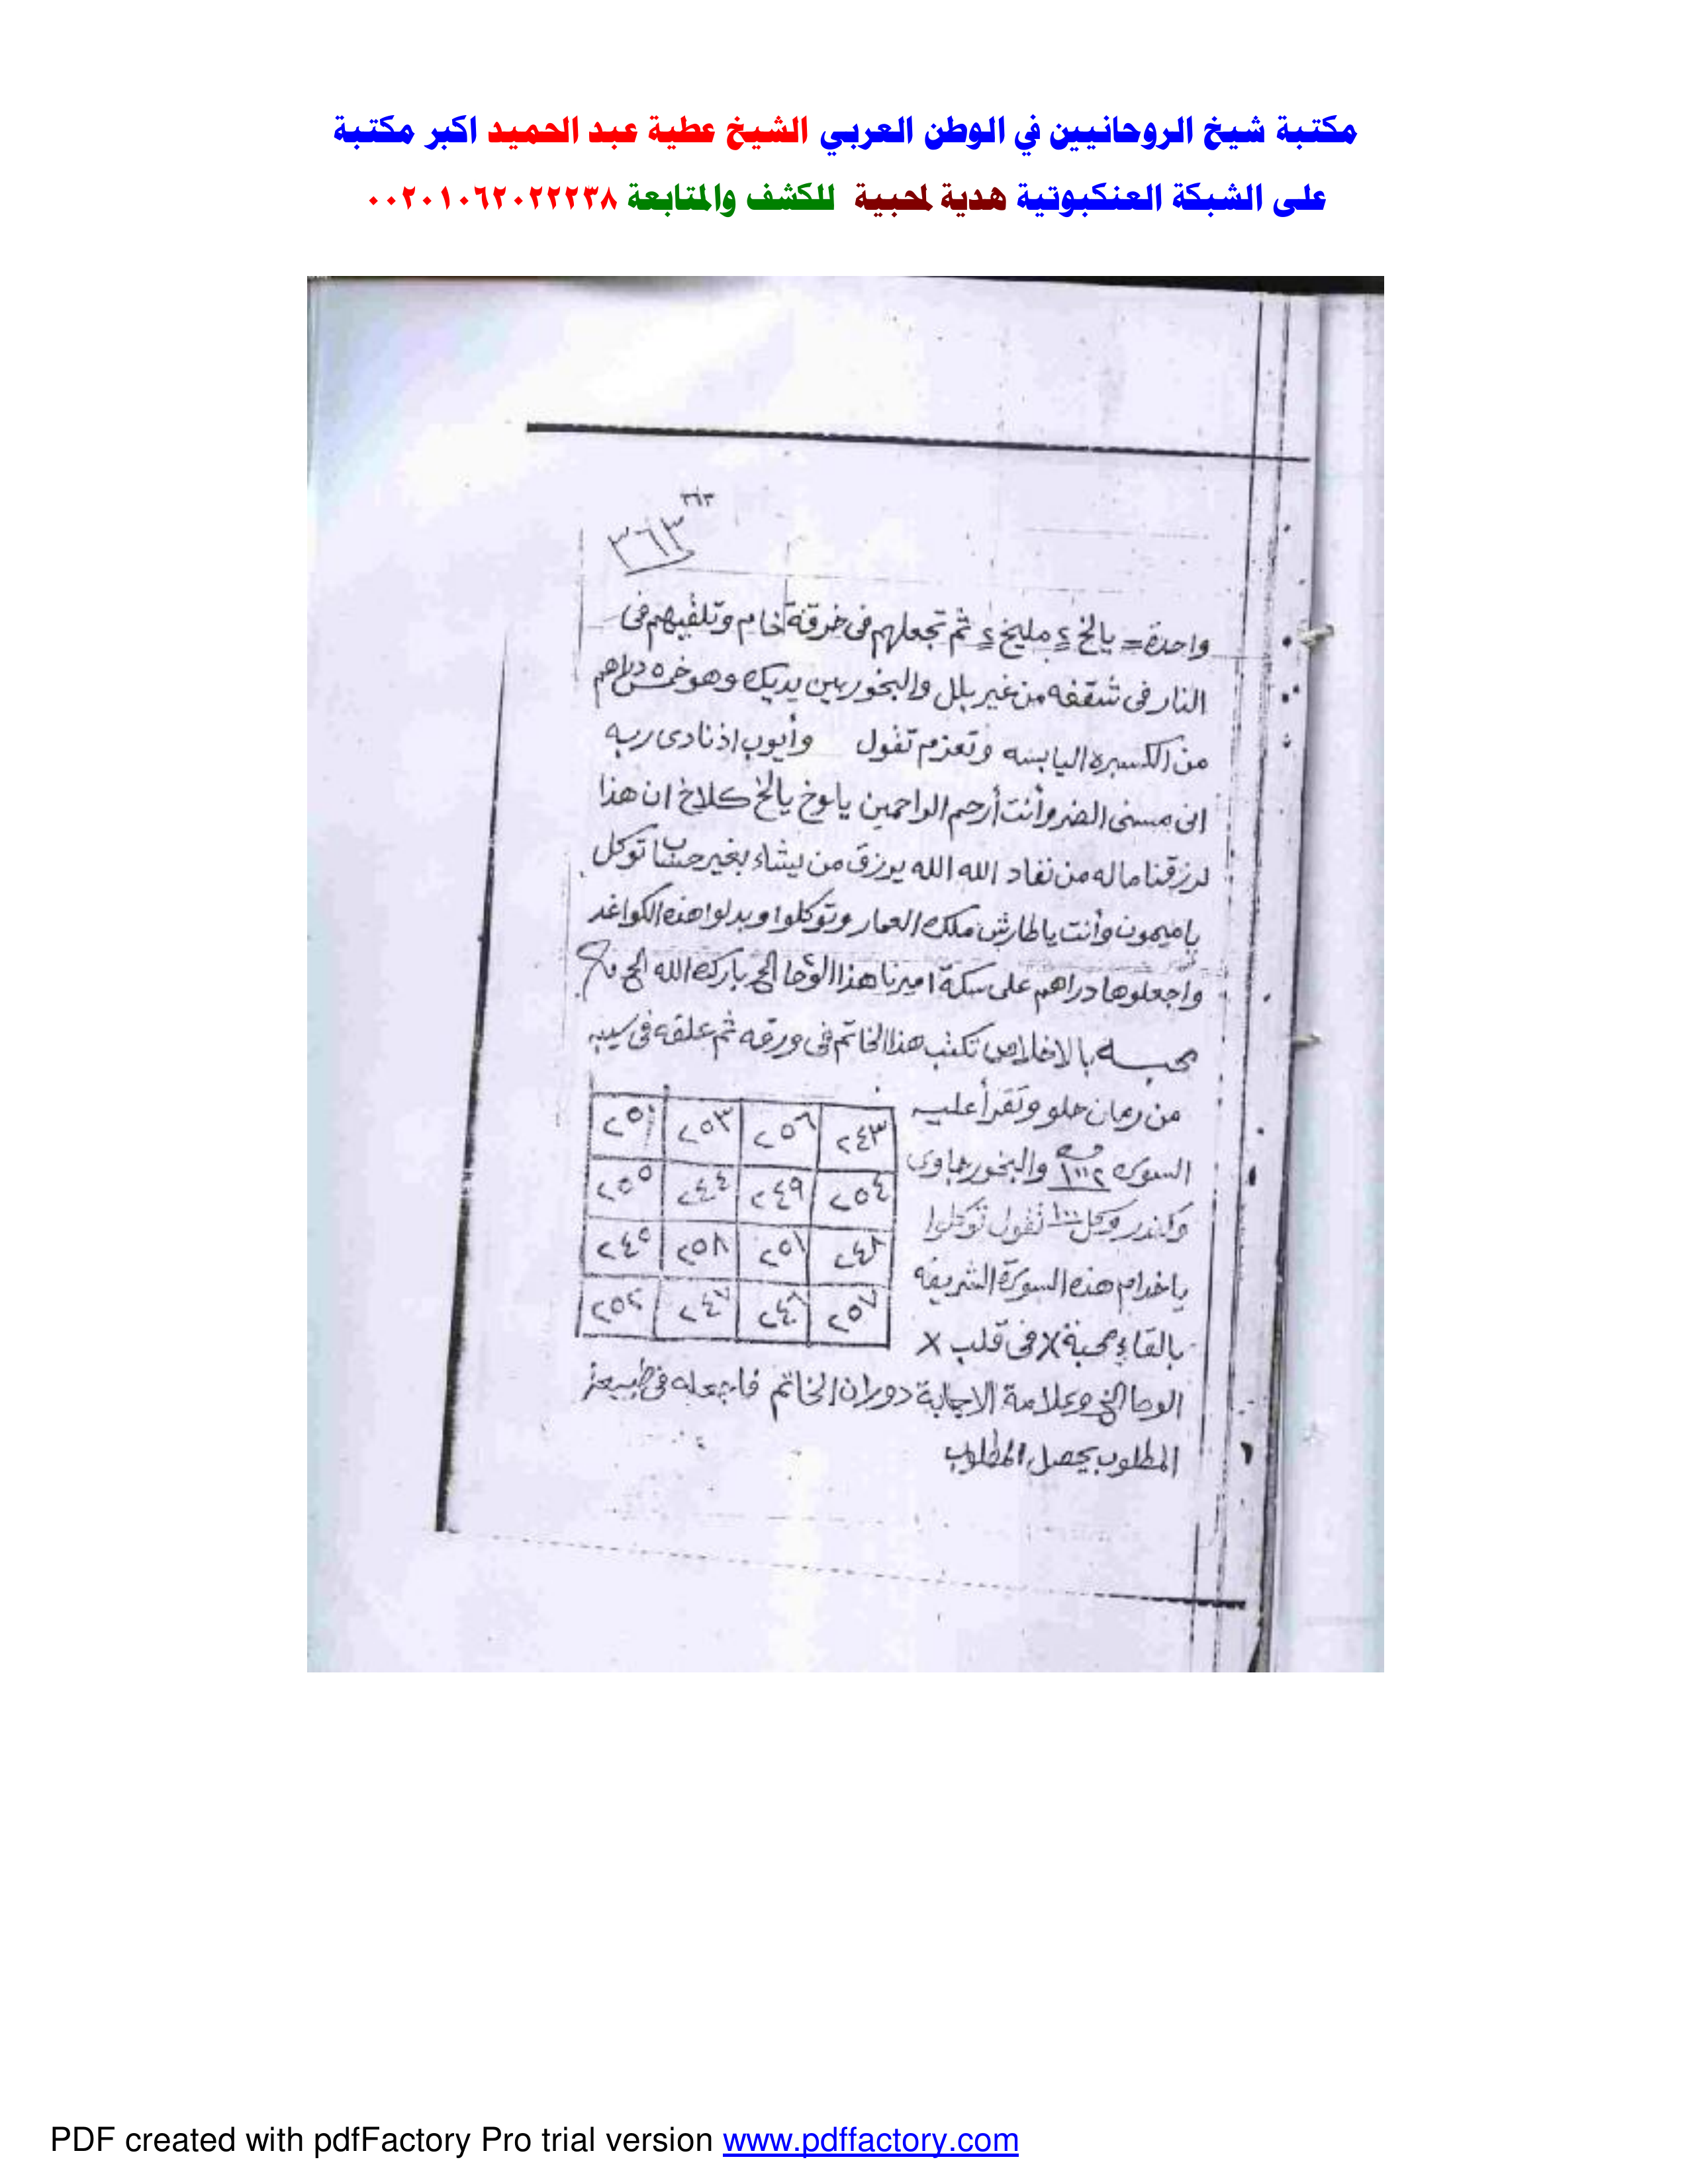 مكتبة شيخ الروحانيين في الوطن العربي الشيخ عطية عبد الحميد اكبر مكتبة
على الشبكة العنكبوتية هدية لمحبية للكشف والمتابعة ٠٠٢٠١٠٦٢٠٢٢٢٣٨
٣٦٣
٣٦٣
واحدة = يالخ ٤ مليخ ٤ ثم تجعلهم فى خرقة خام وتلقيهم فى
النار فى شقفه من غير بلل والبخور بين يديك وهو خمس دراهم
من الكسبره اليابسه وتعزم تقول وأيوب اذ نادى ربه
انى مسنى الضر وأنت أرحم الراحمين يايوخ يالخ كلاخ ان هذا
لرزقنا ماله من نفاد الله الله يرزق من يشاء بغير حساب توكل
ياميمون وأنت ياطارش ملك العمار وتوكلوا وبدلوا هذه الكواغد
واجعلوها دراهم على سكة اميرنا هذا الوحا الخ بارك الله الخ
محبــه بالاخلاص تكتب هذا الخاتم فى ورقه ثم علقه فى سيبه
من رمان حلو وتقرأ عليه
السوره ١٠٠٢ مره والبخور جاوى
وكندر وكل ١٠٠ تقول توكلوا
ياخدام هذه السورة الشريفه
بالقاء محبة X فى قلب X
٢٤٣ ٢٥٦ ٢٥٣ ٢٥٠
٢٥٤ ٢٤٩ ٢٤٤ ٢٥٥
٢٤٨ ٢٥١ ٢٥٨ ٢٤٥
٢٥٧ ٢٤٦ ٢٤٧ ٢٥٢
الوحا الخ وعلامة الاجابة دوران الخاتم فاجعله فى طبيعة
المطلوب يحصل المطلوب
PDF created with pdfFactory Pro trial version www.pdffactory.com